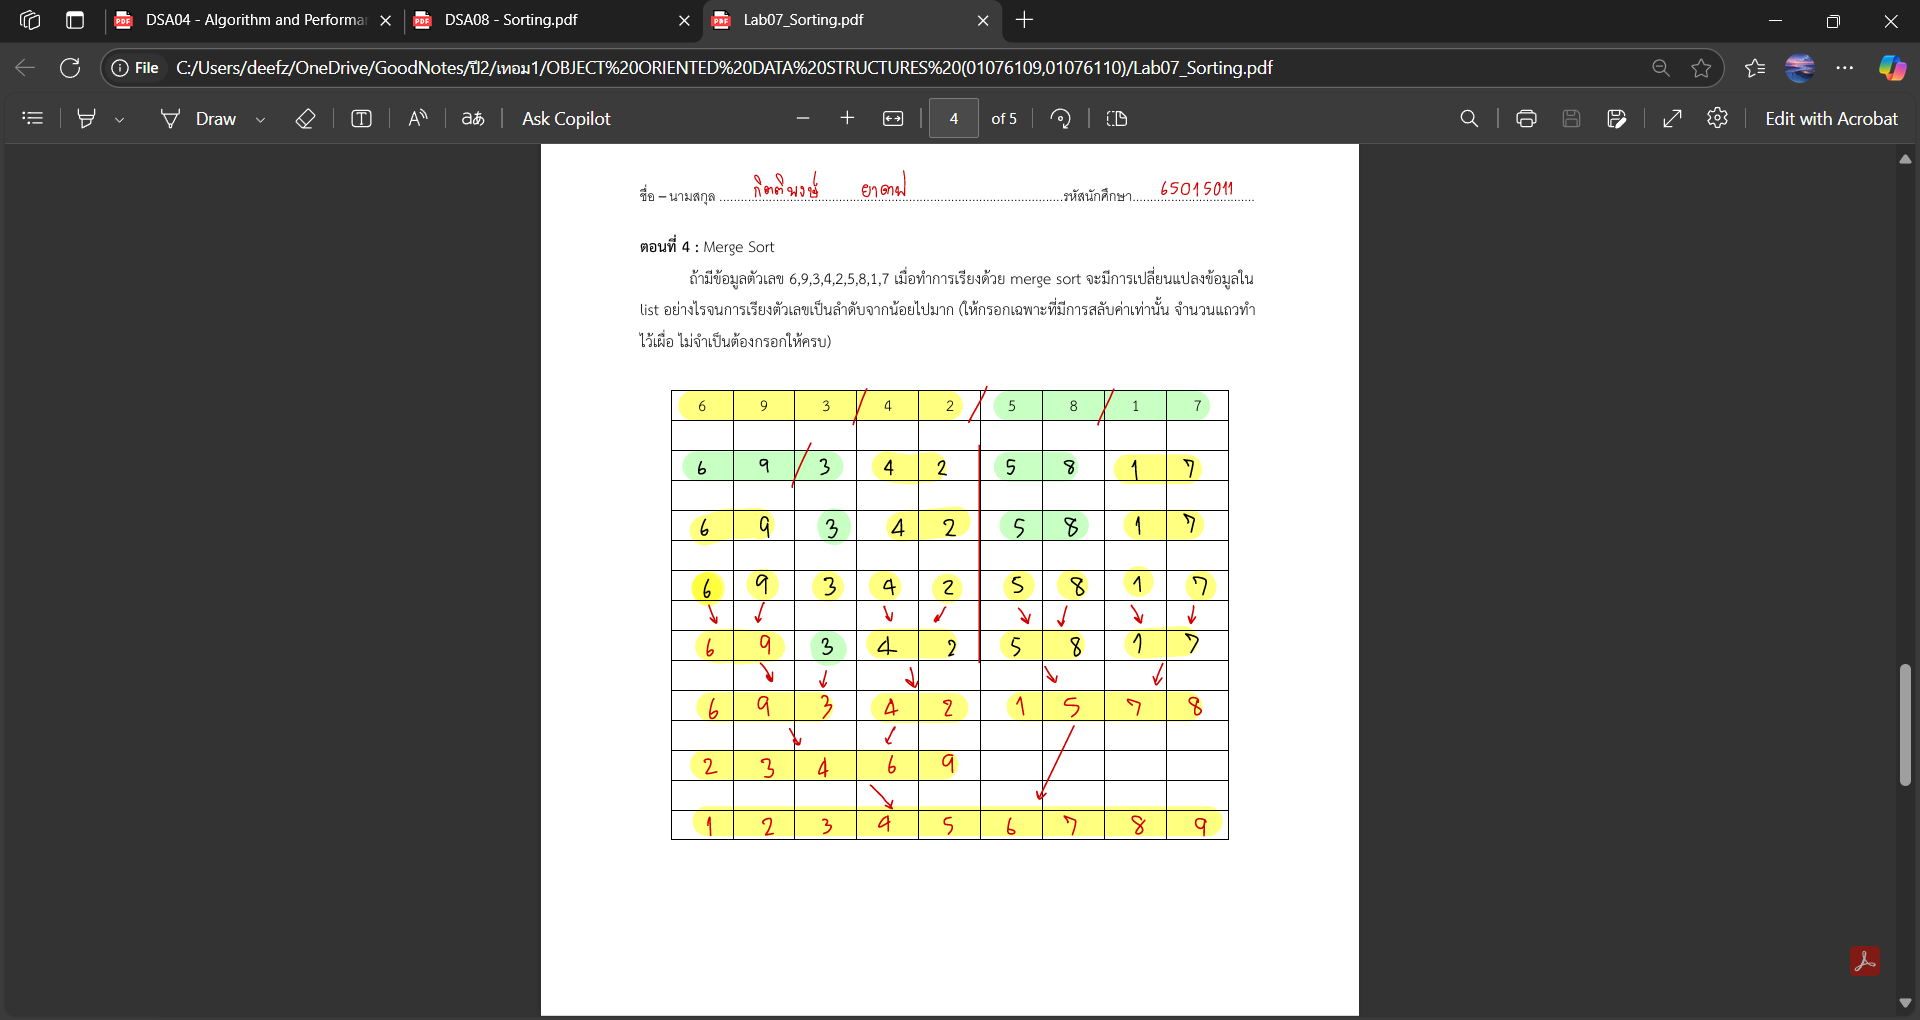 DSA04 - Algorithm and Performan
DSA08 - Sorting.pdf
Lab07_Sorting.pdf
File
C:/Users/deefz/OneDrive/GoodNotes/ปี2/เทอม1/OBJECT%20ORIENTED%20DATA%20STRUCTURES%20(01076109,01076110)/Lab07_Sorting.pdf
Draw
Ask Copilot
4 of 5
Edit with Acrobat
ชื่อ – นามสกุล กิตติพงษ์ รหัสนักศึกษา 65015011
ตอนที่ 4 : Merge Sort
ถ้ามีข้อมูลตัวเลข 6,9,3,4,2,5,8,1,7 เมื่อทำการเรียงด้วย merge sort จะมีการเปลี่ยนแปลงข้อมูลใน
list อย่างไรจนการเรียงตัวเลขเป็นลำดับจากน้อยไปมาก (ให้กรอกเฉพาะที่มีการสลับค่าเท่านั้น จำนวนแถวทำ
ไว้เผื่อ ไม่จำเป็นต้องกรอกให้ครบ)
6 9 3 / 4 2 / 5 8 / 1 7
6 9 / 3 4 2 5 8 1 7
6 9 3 4 2 5 8 1 7
6 9 3 4 2 5 8 1 7
6 9 3 4 2 5 8 1 7
6 9 3 4 2 1 5 7 8
2 3 4 6 9
1 2 3 4 5 6 7 8 9